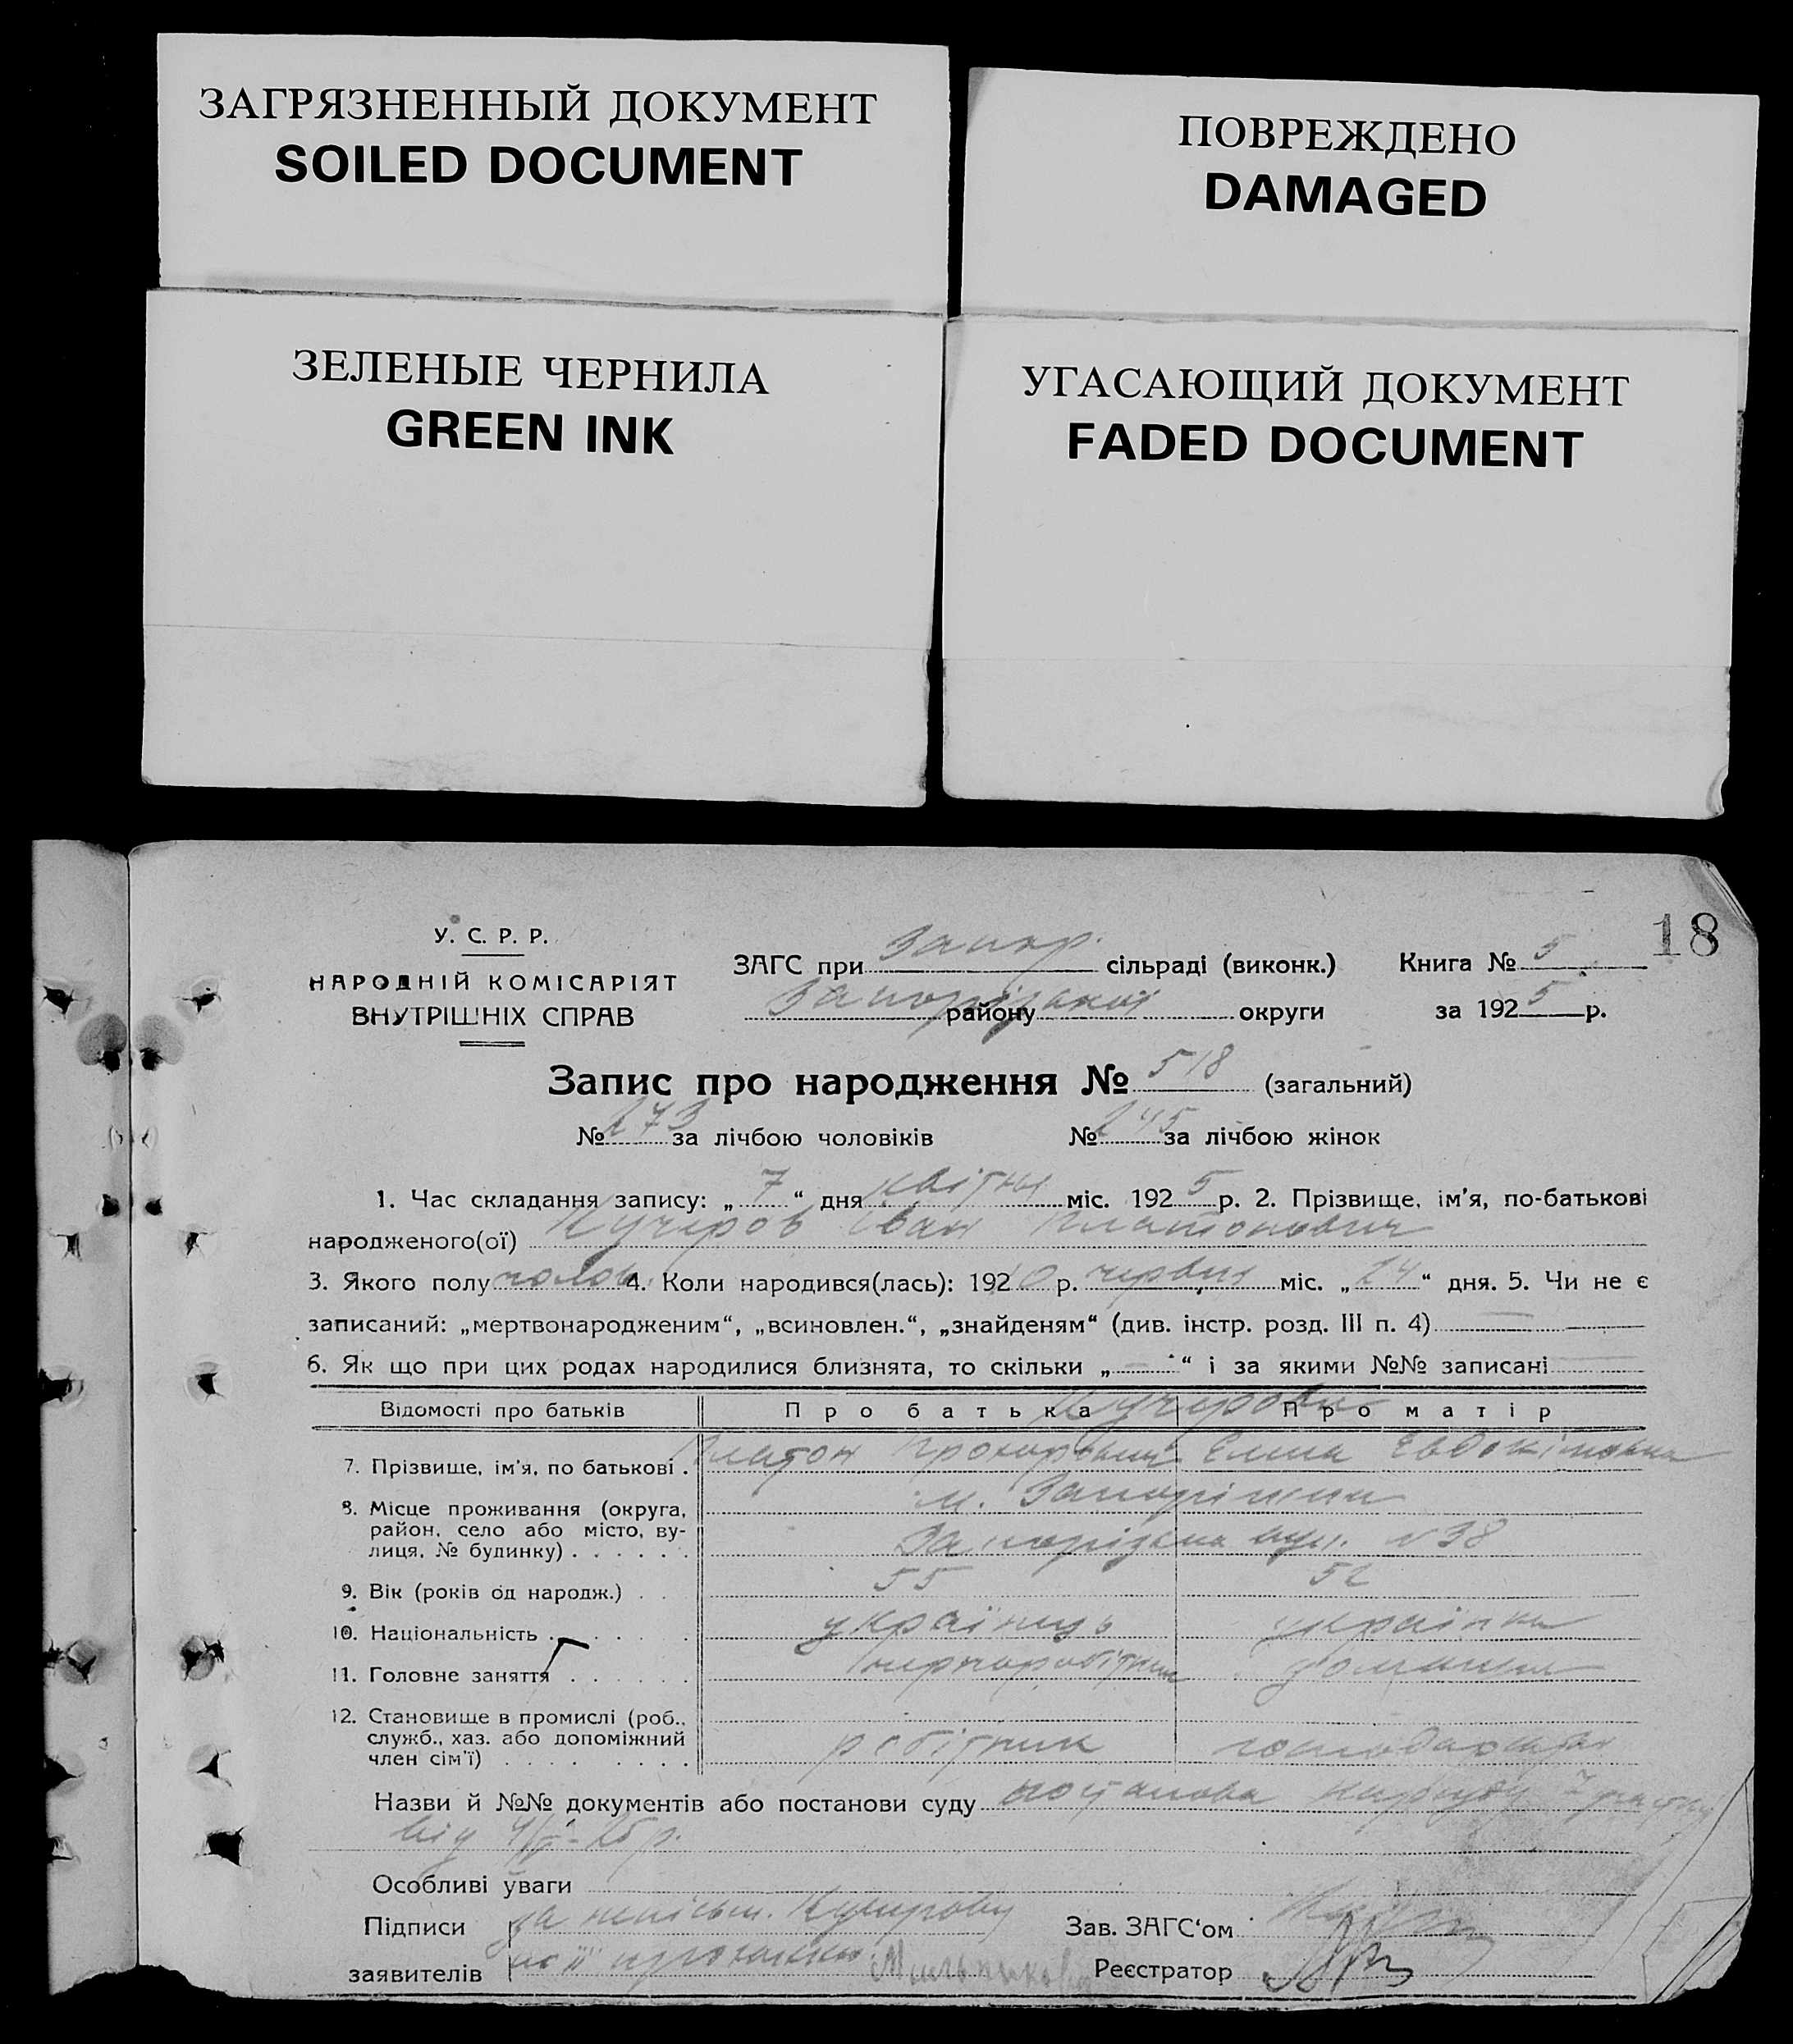 ЗАГРЯЗНЕННЫЙ ДОКУМЕНТ
SOILED DOCUMENT
ПОВРЕЖДЕНО
DAMAGED
ЗЕЛЕНЫЕ ЧЕРНИЛА
GREEN INK
УГАСАЮЩИЙ ДОКУМЕНТ
FADED DOCUMENT
18
У. С. Р. Р.
НАРОДНІЙ КОМІСАРІЯТ
ВНУТРІШНІХ СПРАВ
ЗАГС при Запор. сільраді (виконк.) Книга № 5
Запорізької району округи за 1925 р.
Запис про народження № 518 (загальний)
№ 273 за лічбою чоловіків № 245 за лічбою жінок
1. Час складання запису: „ 7 “ дня квітня міс. 1925 р. 2. Прізвище, ім'я, по-батькові
народженого(ої) Кучеров Іван Платонович
3. Якого полу чолов. 4. Коли народився(лась): 19 10 р. червня міс. „ 24 “ дня. 5. Чи не є
записаний: „мертвонародженим“, „всиновлен.“, „знайденям“ (див. інстр. розд. III п. 4)
6. Як що при цих родах народилися близнята, то скільки „ — “ і за якими №№ записані
Відомості про батьків Про батька Про матір
Кучерови
7. Прізвище, ім'я, по батькові . Платон Прохорович Елена Евдокімовна
8. Місце проживання (округа, м. Запоріжжя
район, село або місто, ву-
лиця, № будинку) . . . . . . Запорізька вул. № 38
9. Вік (років од народж.) . . 55 52
10. Національність . . . . . українець українка
11. Головне заняття . . . . . . чорноробітник домашня
12. Становище в промислі (роб.,
служб., хаз. або допоміжний
член сім'ї) . . . . . . . . робітник
Назви й №№ документів або постанови суду постанова нарсуду 7 участку
від
Особливі уваги
Підписи за неписьм. Кучерову Зав. ЗАГС‘ом
заявителів по її проханню Мельникова Реєстратор